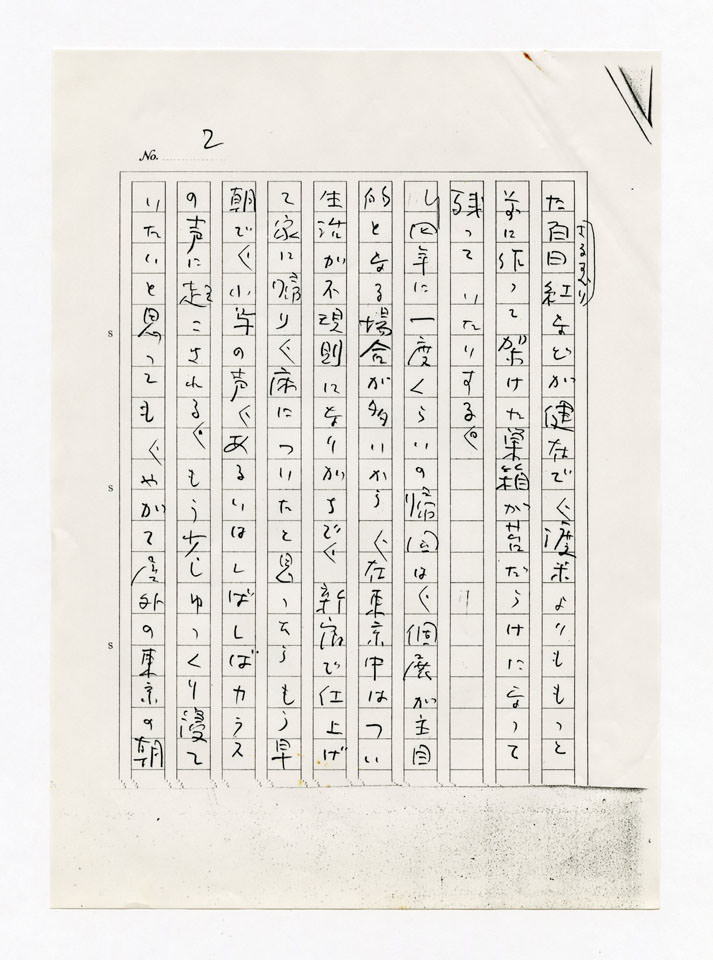 No. 2
さるすべり
た百日紅などが健在で、渡米よりももっと
前に作って架けた巣箱が苔だらけになって
残っていたりする。
四年に一度くらいの帰国は、個展が主目
的となる場合が多いから、在東京中はつい
生活が不規則になりがちで、新宿で仕上げ
て家に帰り、床についたと思ったらもう早
朝で、小鳥の声、あるいはしばしばカラス
の声に起こされる。もう少しゆっくり寝て
いたいと思っても、やがて屋外の東京の朝
s
s
s